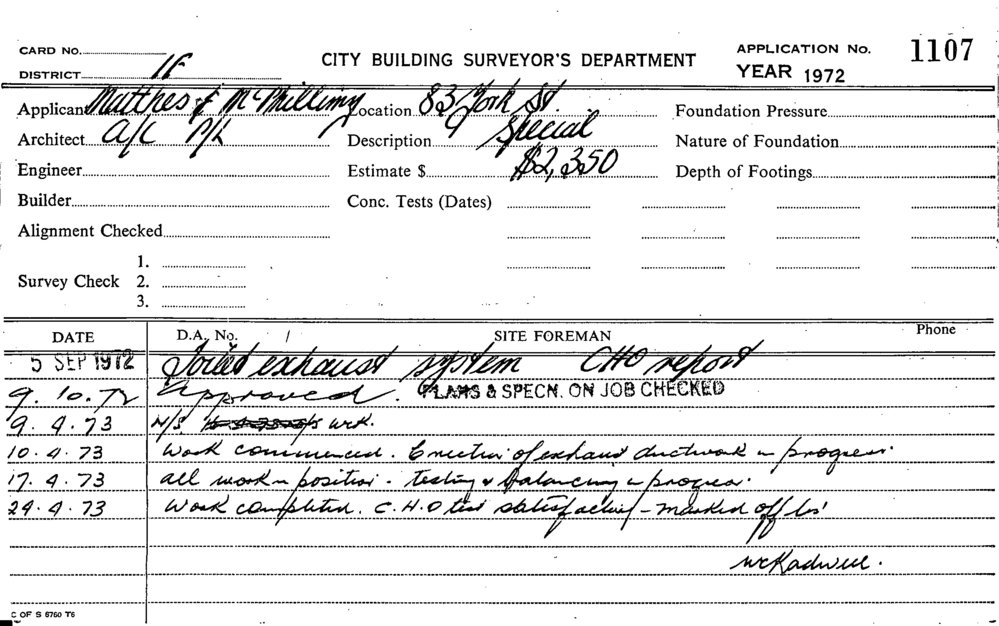 CARD No.
DISTRICT 1F
CITY BUILDING SURVEYOR'S DEPARTMENT
APPLICATION No. 1107
YEAR 1972
Applicant Matthes & McMillimy
Location 83 York St.
Foundation Pressure
Architect A/C P/L
Description Special
Nature of Foundation
Engineer
Estimate $ $2,350
Depth of Footings
Builder
Conc. Tests (Dates)
Alignment Checked
Survey Check
1.
2.
3.
DATE D.A. No. / SITE FOREMAN Phone
5 SEP 1972 Toilet exhaust system CHO report
9.10.72 Approved. PLANS & SPECN. ON JOB CHECKED
9.4.73 N/S wk.
10.4.73 Work commenced. Erection of exhaust ductwork in progress.
17.4.73 All work in position. testing & balancing in progress.
24.4.73 Work completed. C.H.O test satisfactory - marked off
C OF S 6760 T6